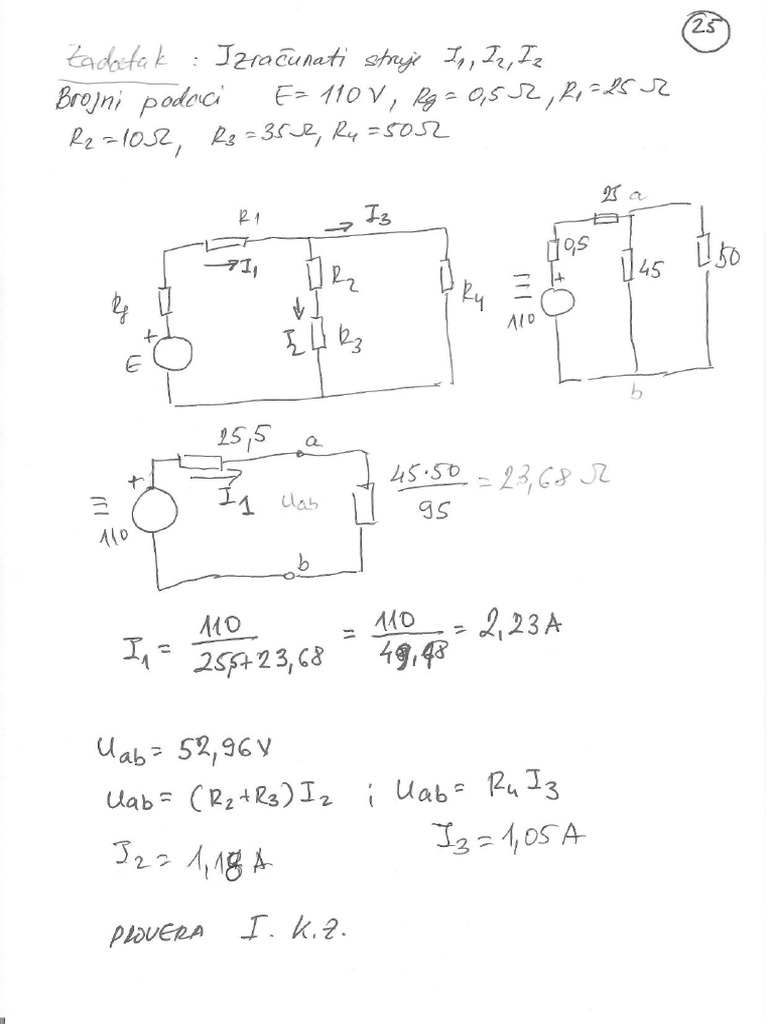 25
Zadatak : Izračunati struje I1, I2, I2
Brojni podaci E = 110 V, Rg = 0,5 Ω, R1 = 25 Ω
R2 = 10 Ω, R3 = 35 Ω, R4 = 50 Ω
R1
I3
I1
R2
Rg
+
E
I2
R3
R4
25 a
0,5
≡
+
110
45
50
b
25,5
a
+
I1
Uab
≡
110
b
45·50/95 = 23,68 Ω
I1 = 110/25,5+23,68 = 110/49,18 = 2,23 A
Uab = 52,96 V
Uab = (R2 + R3) I2 ; Uab = R4 I3
I2 = 1,18 A
I3 = 1,05 A
PROVERA I. K.Z.